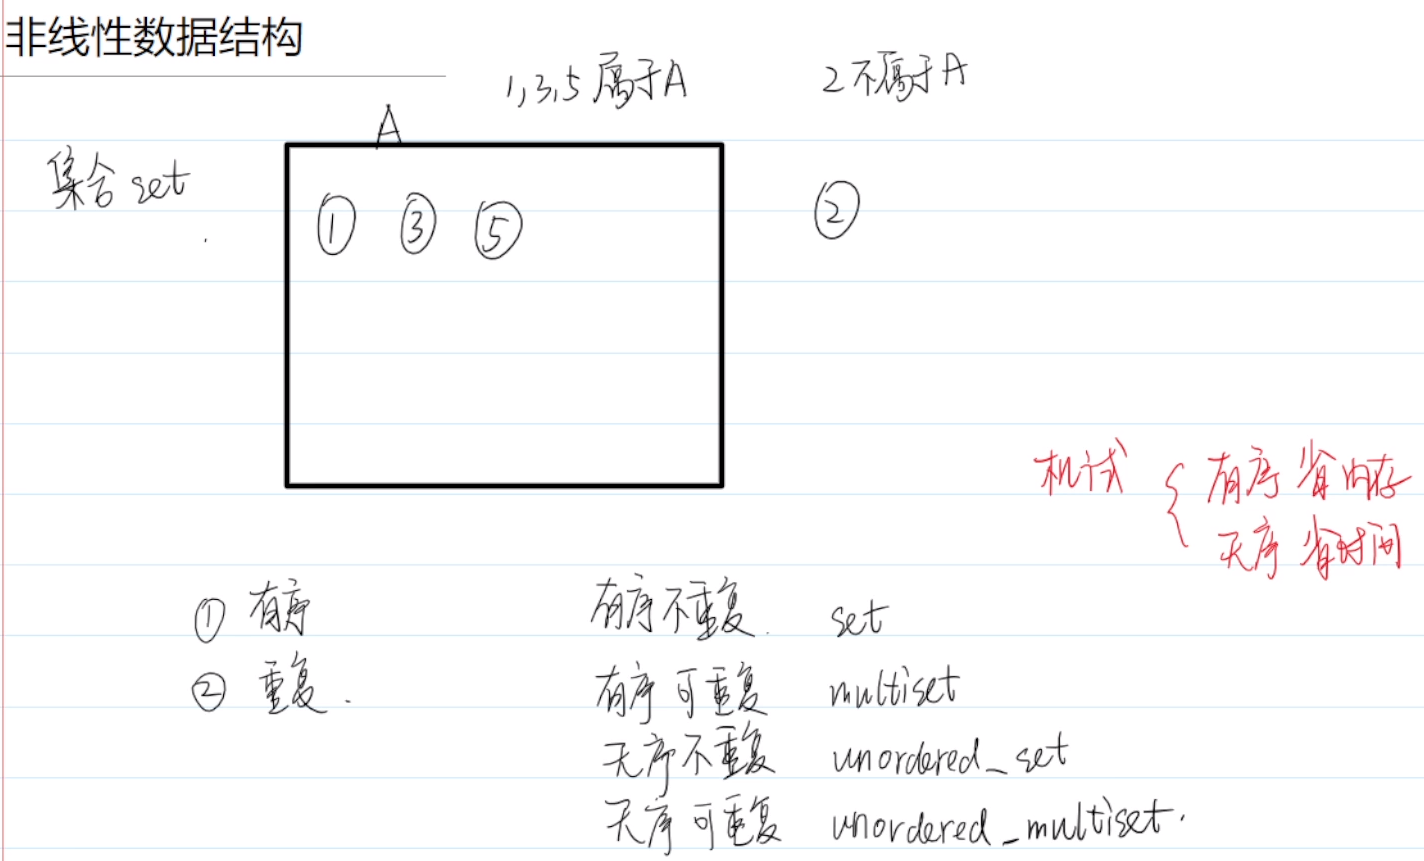 非线性数据结构
1,3,5 属于A 2不属于A
A
集合 set
① ③ ⑤ ②
机试 { 有序 省内存
无序 省时间
① 有序 有序不重复. set
② 重复. 有序可重复 multiset
无序不重复 unordered_set
无序可重复 unordered_multiset.